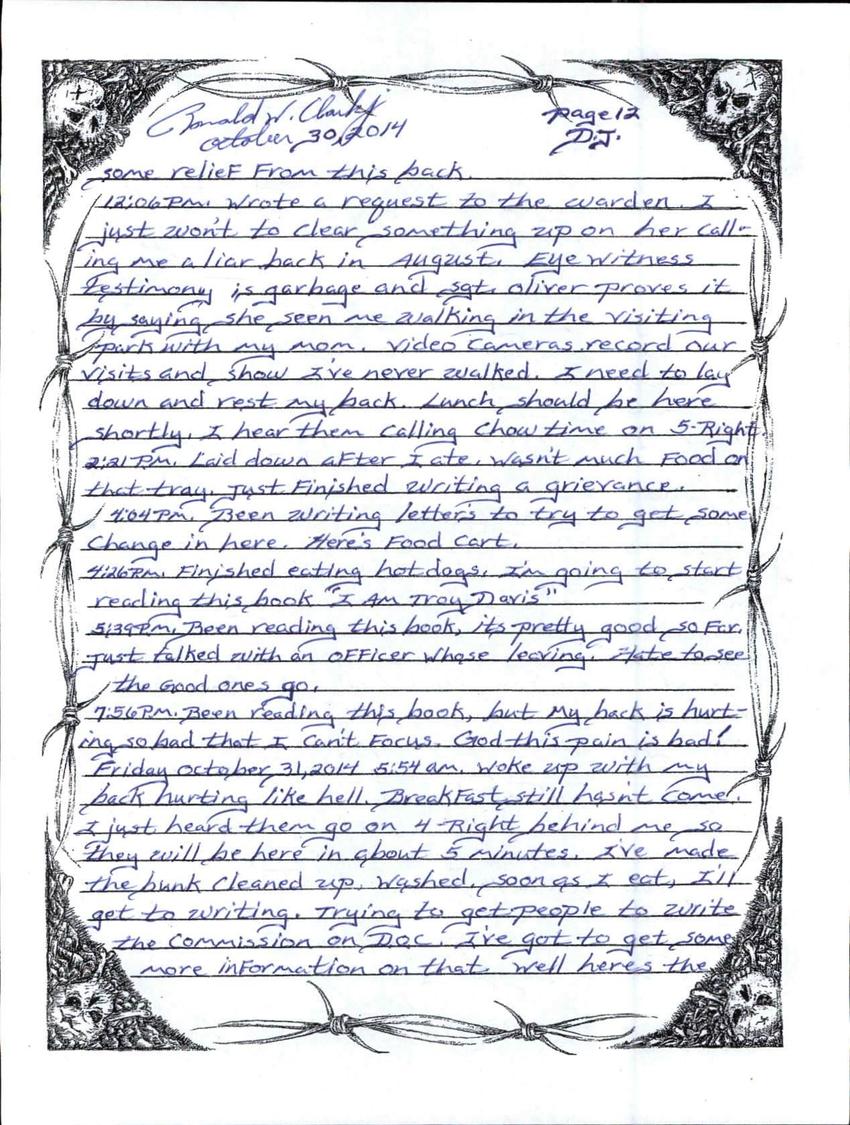 Ronald W. Clark Jr
October 30, 2014
page 12
D.J.
some relief from this back.
12:06 PM. Wrote a request to the warden. I
just won't to clear something up on her call-
ing me a liar back in August. Eye witness
testimony is garbage and sgt. Oliver proves it
by saying she seen me walking in the visiting
park with my mom. Video cameras record our
visits and show I've never walked. I need to lay
down and rest my back. Lunch should be here
shortly, I hear them calling chow time on 5-Right.
2:21 PM. Laid down after I ate, wasn't much food on
that tray. Just finished writing a grievance.
4:04 PM. Been writing letters to try to get some
change in here. Here's food cart.
4:26 PM. Finished eating hotdogs. I'm going to start
reading this book "I Am Troy Davis"
5:39 PM. Been reading this book, its pretty good so far.
Just talked with an officer whose leaving. Hate to see
the good ones go.
7:56 PM. Been reading this book, but my back is hurt-
ing so bad that I can't focus. God this pain is bad!
Friday October 31, 2014 5:54 am. Woke up with my
back hurting like hell. Breakfast still hasn't come.
I just heard them go on 4-Right behind me so
they will be here in about 5 minutes. I've made
the bunk cleaned up, washed, soon as I eat, I'll
get to writing. Trying to get people to write
the Commission on D.O.C. I've got to get some
more information on that. Well heres the